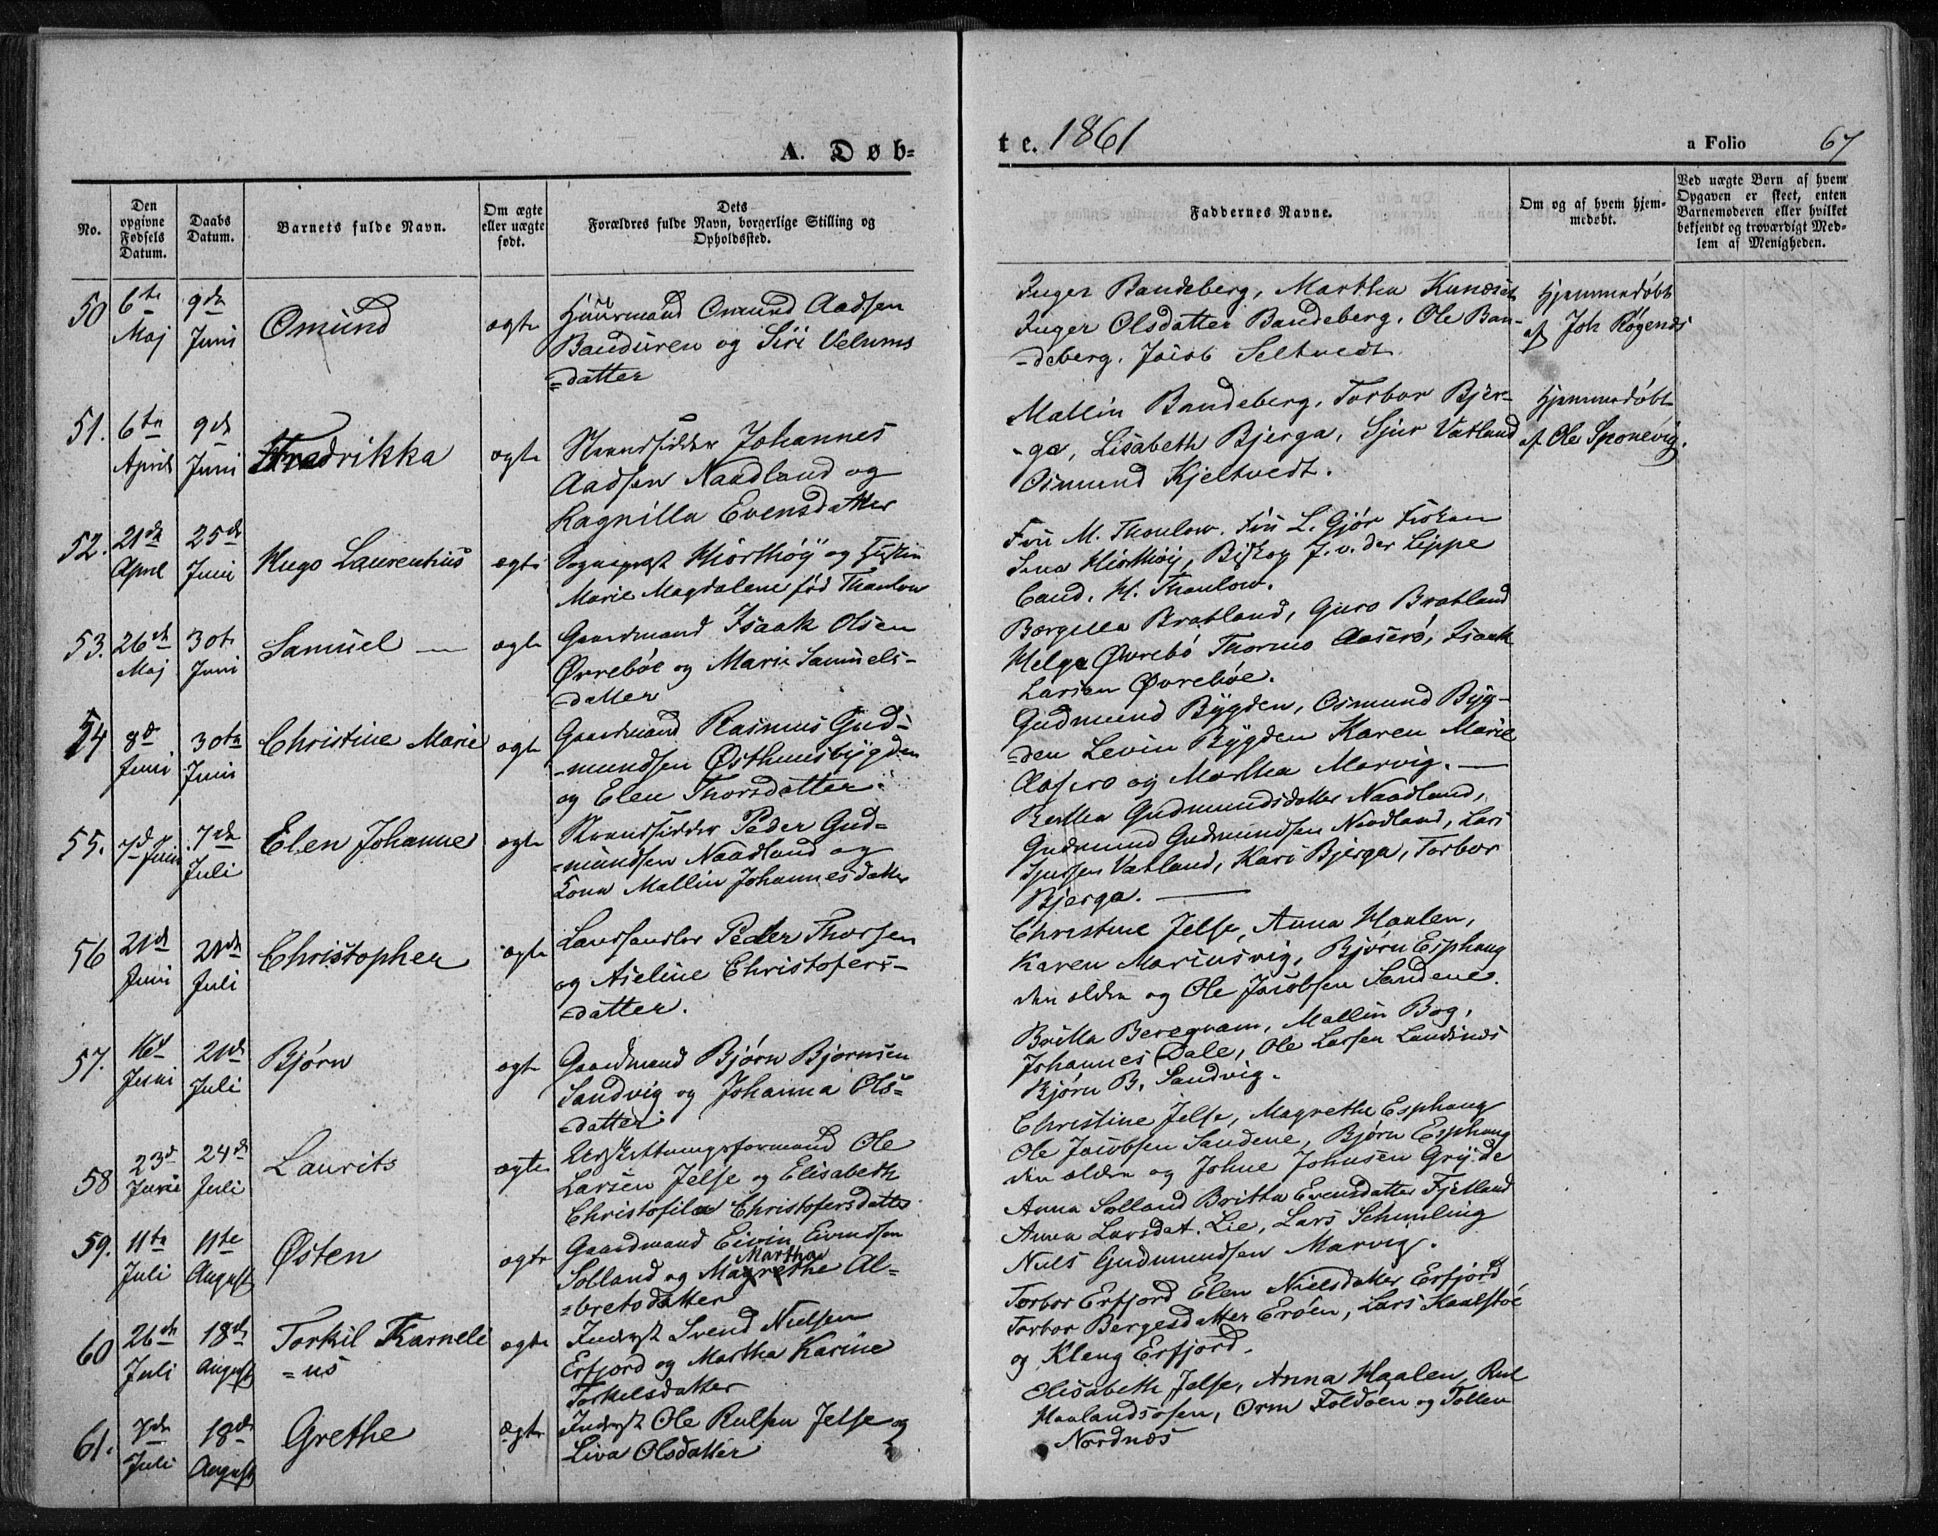 A. Døb-
te. 1861
a Folio 67
No.
Den opgivne Fødsels Datum.
Daabs Datum.
Barnets fulde Navn.
Om ægte eller uægte født.
Dets
Forældres fulde Navn, borgerlige Stilling og
Opholdssted.
Faddernes Navne.
Om og af hvem hjem-
medøbt.
Ved uægte Børn af hvem
Opgaven er skeet, enten
Barnemoderen eller hvilket
bekjendt og troværdigt Med-
lem af Menigheden.
50
6te Maj
9de Juni
Omund
ægte
Huusmand Omund Aadsen
Bauduren og Siri Velums
=datter
Inger Bandeberg, Martha
Inger Olsdatter Bandeberg, Ole Ban-
-deberg, Jacob Seltvedt
Hjemmedøbt
af Joh Røgenes
51.
6te April
9de Juni
Fredrikka
ægte
Strandsidder Johannes
Aadsen Naadland og
Ragnilla Evensdatter
Mallin Bandeberg, Torbor Bjer-
-ga, Lisabeth Bjerga, Sjur Vatland
Osmund Kjeltvedt.
Hjemmedøbt
af Ole Sponevig.
52.
21de April
25de Juni
Hugo Laurentius
ægte
Sognepræst Hiorthøy og Hustru
Marie Magdalene fød Thaulow
Fru M. Thaulow, Fru L. Gjør, Frøken
Lina Hiorthøy, Biskop J. v. der Lippe
Cand. H. Thaulow.
53.
26de Maj
30te Juni
Samuel
ægte
Gaardmand Isaak Olsen
Øvrebøe og Marie Samuels-
-datter
Børgilla Bratland, Guro Bratland
Helge Øvrebø Thormo Aaserø, Isaak
Larsen Øvrebøe.
54
8de Juni
30te Juni
Christine Marie
ægte
Gaardmand Rasmus Gud-
-mundsen Østhuusbygden
og Elen Thorsdatter.
Gudmund Bygden, Osmund Byg-
=den Levin Bygden Karen Marie
Aasero og Martha Marvig.
55.
7d Juni
7de Juli
Elen Johanne
ægte
Strandsidder Peder Gud=
=mundsen Naadland og
Kona Mallin Johannesdatter
Bertha Gudmundsdatter Naadland,
Gudmund Gudmundsen Naadland, Lars
Sjursen Vatland, Kari Bjerga, Torbor
Bjerga.
56
21de Juni
21de Juli
Christopher
ægte
Landhandler Peder Thorsen
og Aseline Christofers-
-datter.
Christine Jelse, Anna Haalen,
Karen Mariusvig, Bjørn Esphaug
den eldre og Ole Jacobsen Sandene.
57.
16d Juni
21de Juli
Bjørn
ægte
Gaardmand Bjørn Bjørnsen
Sandvig og Johanna Ols=
-datter
Britha Beregvam, Mallin Bog,
Johannes Dale, Ole Larsen Landsnæs
Bjørn B. Sandvig.
58
23d Juni
24de Juli
Laurits
ægte
Udskiftningsformand Ole
Larsen Jelse og Elisabeth
Christofila Christofersdatter
Christine Jelse, Magrethe Esphaug
Ole Jacobsen Sandene, Bjørn Esphaug
den eldre og Johne Johnsen Gryde
59.
11te Juli
11te August
Østen
ægte
Gaardmand Eivin Eivindsen
Solland og Magrethe Martha Al=
=bretsdatter
Anna Solland Britha Evensdatter Fjetland
Anna Larsdat. Lie, Lars Schmling
Niels Gudmundsen Marvig.
60
26de Juli
18de August
Torkil Karneli
=us
ægte
Inderst Svend Nielsen
Erfjord og Martha Karine
Torkelsdatter
Torbor Erfjord Elen Nielsdatter Erfjord
Torbor Bergesdatter Erøen, Lars Haalstøe
og Kleng Erfjord.
61.
7de Juli
18de August
Grethe
ægte
Inderst Ole Rulsen Jelse og
Liva Olsdatter
Elisabeth Jelse, Anna Haalen, Rul
Haalandsosen, Orm Foldøen og Tollen
Nordnæs